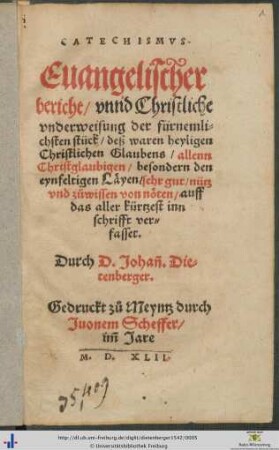 CATECHISMVS.
Euangelischer
beriche/ vnnd Christliche
vnderweisung der fürnemli-
chsten stück/ deß waren heyligen
Christlichen Glaubens/ allenn
Christglaubigen/ besondern den
eynfeltigen Läyen/sehr gut/ nütz
vnd zůwissen von nöten/ auff
das aller kürtzest inn
schrifft ver-
fasset.
Durch D. Johañ. Die-
tenberger.
Gedruckt zů Meyntz durch
Iuonem Scheffer/
im̃ Jare
M. D. XLII.
http://dl.ub.uni-freiburg.de/diglit/dietenberger1542/0005
© Universitätsbibliothek Freiburg